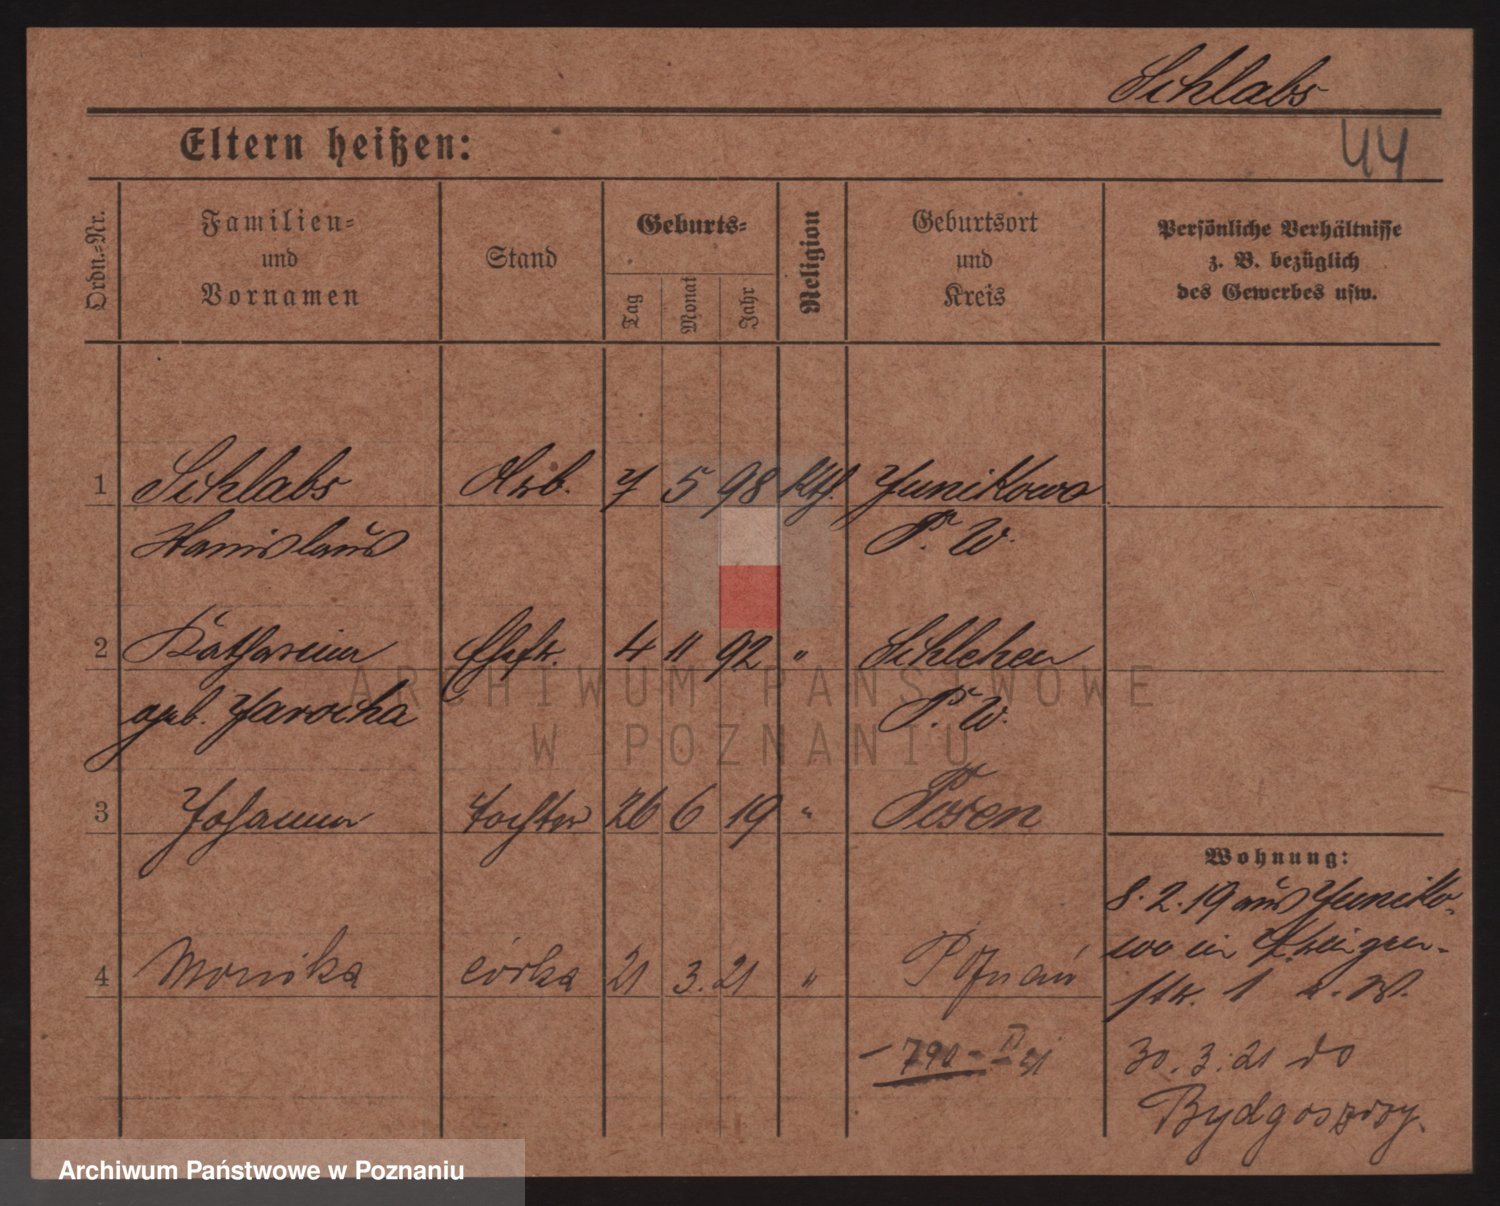 Schlabs
44
Eltern heißen:
Ordn.-Nr.
Familien-
und
Vornamen
Stand
Geburts-
Tag
Monat
Jahr
Religion
Geburtsort
und
Kreis
Persönliche Verhältnisse
z. B. bezüglich
des Gewerbes usw.
1 Schlabs Arb. 7 5 98 Kth. Junikowo
Stanislaus P. W.
2 Katharina Ehefr. 4 11 92 " Schlehen
geb. Jarocha P. W.
3 Johanna Tochter 26 6 19 " Posen
Wohnung:
8.2.19 aus Juniko-
wo in
4 Monika córka 21 3. 21 " Poznań
str. 1
- 790 - II
30.3.21 do
Bydgoszczy.
ARCHIWUM PAŃSTWOWE
W POZNANIU
Archiwum Państwowe w Poznaniu